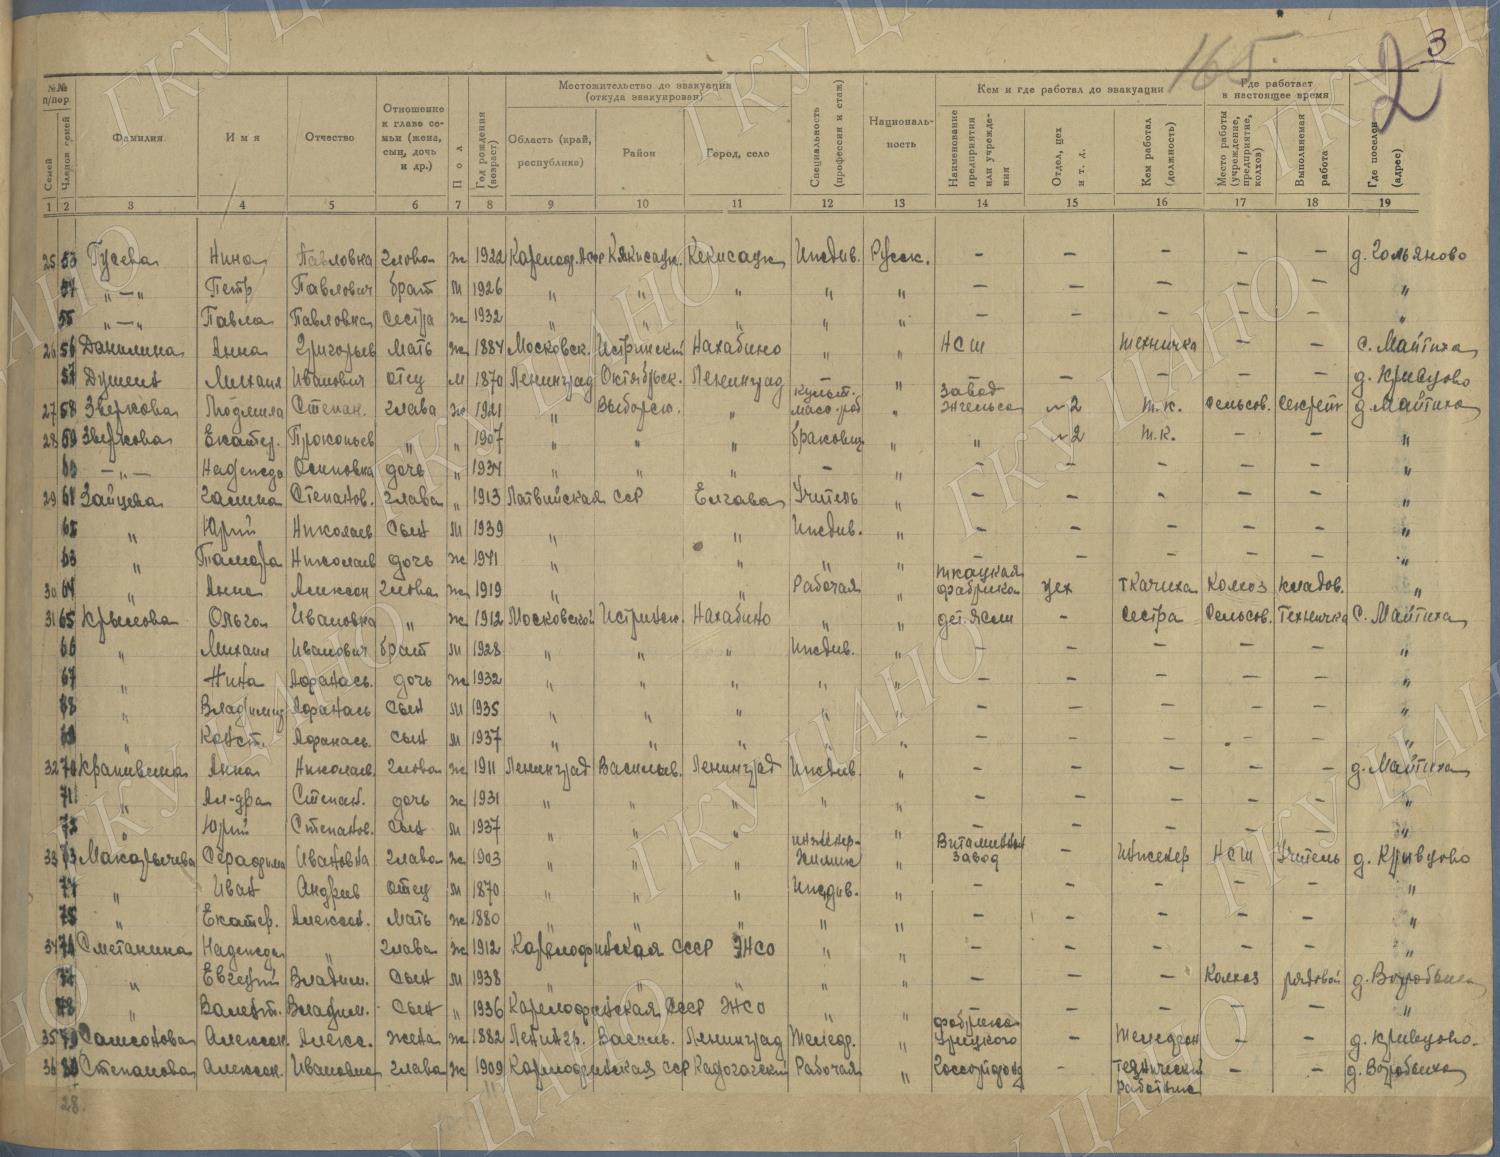 165
2
3
№№ п/пор.
Семей
Членов семей
Фамилия
Имя
Отчество
Отношение к главе семьи (жена, сын, дочь и др.)
Пол
Год рождения (возраст)
Местожительство до эвакуации (откуда эвакуирован)
Область (край, республика)
Район
Город, село
Специальность (профессия и стаж)
Националь-ность
Кем и где работал до эвакуации
Наименование предприятия или учрежде-ния
Отдел, цех и т. д.
Кем работал (должность)
Где работает в настоящее время
Место работы (учреждение, предприятие, колхоз)
Выполняемая работа
Где поселен (адрес)
1 2 3 4 5 6 7 8 9 10 11 12 13 14 15 16 17 18 19
25 53 Гусева Нина Павловна глава ж 1922 Кексисации Иждив. Русск. — — — — — д. Гольяново
54 „—„ Петр Павлович брат м 1926 „ „ „ „ „ — — — — — „
55 „—„ Павла Павловна сестра ж 1932 „ „ „ „ „ — — — — — „
26 56 Данилина Анна Григорьев мать ж 1884 Московск. Истринский Нахабино „ „ НСШ техничка — — с. Майтиха
57 Душеив Михаил Иванович отец м 1870 Ленинград Октябрьск. Ленинград — „ — — — — — д. Кривцово
27 58 Зверкова Людмила Степан. глава ж 1921 „ Выборск. „ культ. масс. раб „ Завод Энгельса №2 т.к. сельсов. секрет. д. Майтиха
28 59 Зверкова Екатер. Прокопьев „ „ 1907 „ „ „ браковщ „ „ №2 т.к. — — „
60 —„— Надежда Осиповна дочь ж 1934 „ „ „ — „ — — — — — „
29 61 Зайцева Галина Степанов. глава „ 1913 Латвийская ССР Елгава Учитель „ — — — — — „
62 „ Юрий Николаев сын м 1939 „ „ Иждив. „ — — — — — „
63 „ Тамара Николаев дочь ж 1941 „ „ „ „ — — — — — „
30 64 „ Анна Алексан глава ж 1919 „ „ Рабочая „ ткацкая фабрика цех ткачиха колхоз кладов. „
31 65 Крымова Ольга Ивановна „ ж 1912 Московской Истринск. Нахабино „ „ дет. ясли — сестра сельсов. техничка с. Майтиха
66 „ Михаил Иванович брат м 1928 „ „ „ Иждив. „ — — — — — „
67 „ Нина Афанась. дочь ж 1932 „ „ „ „ „ — — — — — „
68 „ Владимир Афанась сын м 1935 „ „ „ „ „ — — — — — „
69 „ Конст. Афанась. сын м 1937 „ „ „ „ „ — — — — — „
32 70 Крапивина Анна Николаев. глава ж 1911 Ленинград Васильев. Ленинград Иждив. „ — — — — — д. Майтиха
71 „ Ал-дра Степан. дочь ж 1931 „ „ „ „ „ — — — — — „
72 „ Юрий Степанов. сын м 1937 „ „ „ „ „ — — — — — „
33 73 Макарычева Серафима Ивановна глава ж 1903 „ „ „ инженер-химик „ Витаминный завод — инженер НСШ Учитель д. Кривцово
74 „ Иван Андрев отец м 1870 „ „ „ Иждив. „ — — — — — „
75 „ Екатер. Алексан. мать ж 1880 „ „ „ „ „ — — — — — „
34 76 Сметанина Надежда „ глава ж 1912 Карелофинская СССР ЭНСО „ „ — — — — — „
77 „ Евгений Владим. сын м 1938 „ „ „ „ „ — — — колхоз рядовой д. Воробьиха
78 „ Валент. Владим. сын „ 1936 Карелофинская СССР ЭНСО „ „ — — — — — „
35 79 Самсонова Алексан. Алекс. жена ж 1882 Ленингр. Василь. Ленинград „ фабрика Урицкого — — — д. Кривцово.
36 80 Степанова Алексан. Ивановна глава ж 1909 Карелофинская ССР Рабочая „ — технический работник — — д. Воробьиха
28.
ГКУ ЦАНО